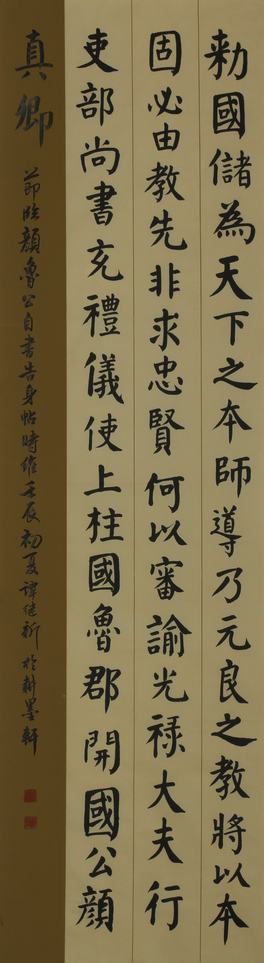 勅國儲為天下之本師導乃元良之教將以本
固必由教先非求忠賢何以審諭光祿大夫行
吏部尚書充禮儀使上柱國魯郡開國公顏
真卿
節臨顏魯公自書告身帖時維壬辰初夏譚繼新於耕墨軒